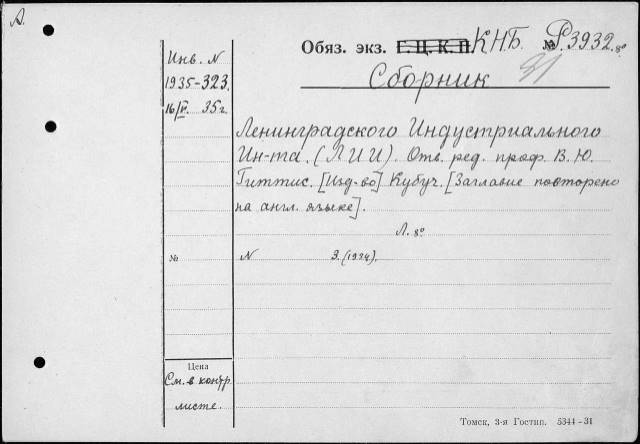 А.
Обяз. экз. Г.Ц.К.П. К.Н.Б. № Р3932.8°
31
Инв. N
1935-323.
16/IV. 35г.
Сборник
Ленинградского Индустриального
Ин-та. (ЛИИ). Отв. ред. проф. В. Ю.
Гиттис. [Изд-во] Кубуч. [Заглавие повторено
на англ. языке].
Л. 8°
№ N 3. (1934).
Цена
См. в контр.
листе.
Томск, 3-я Гостип. 5344-31